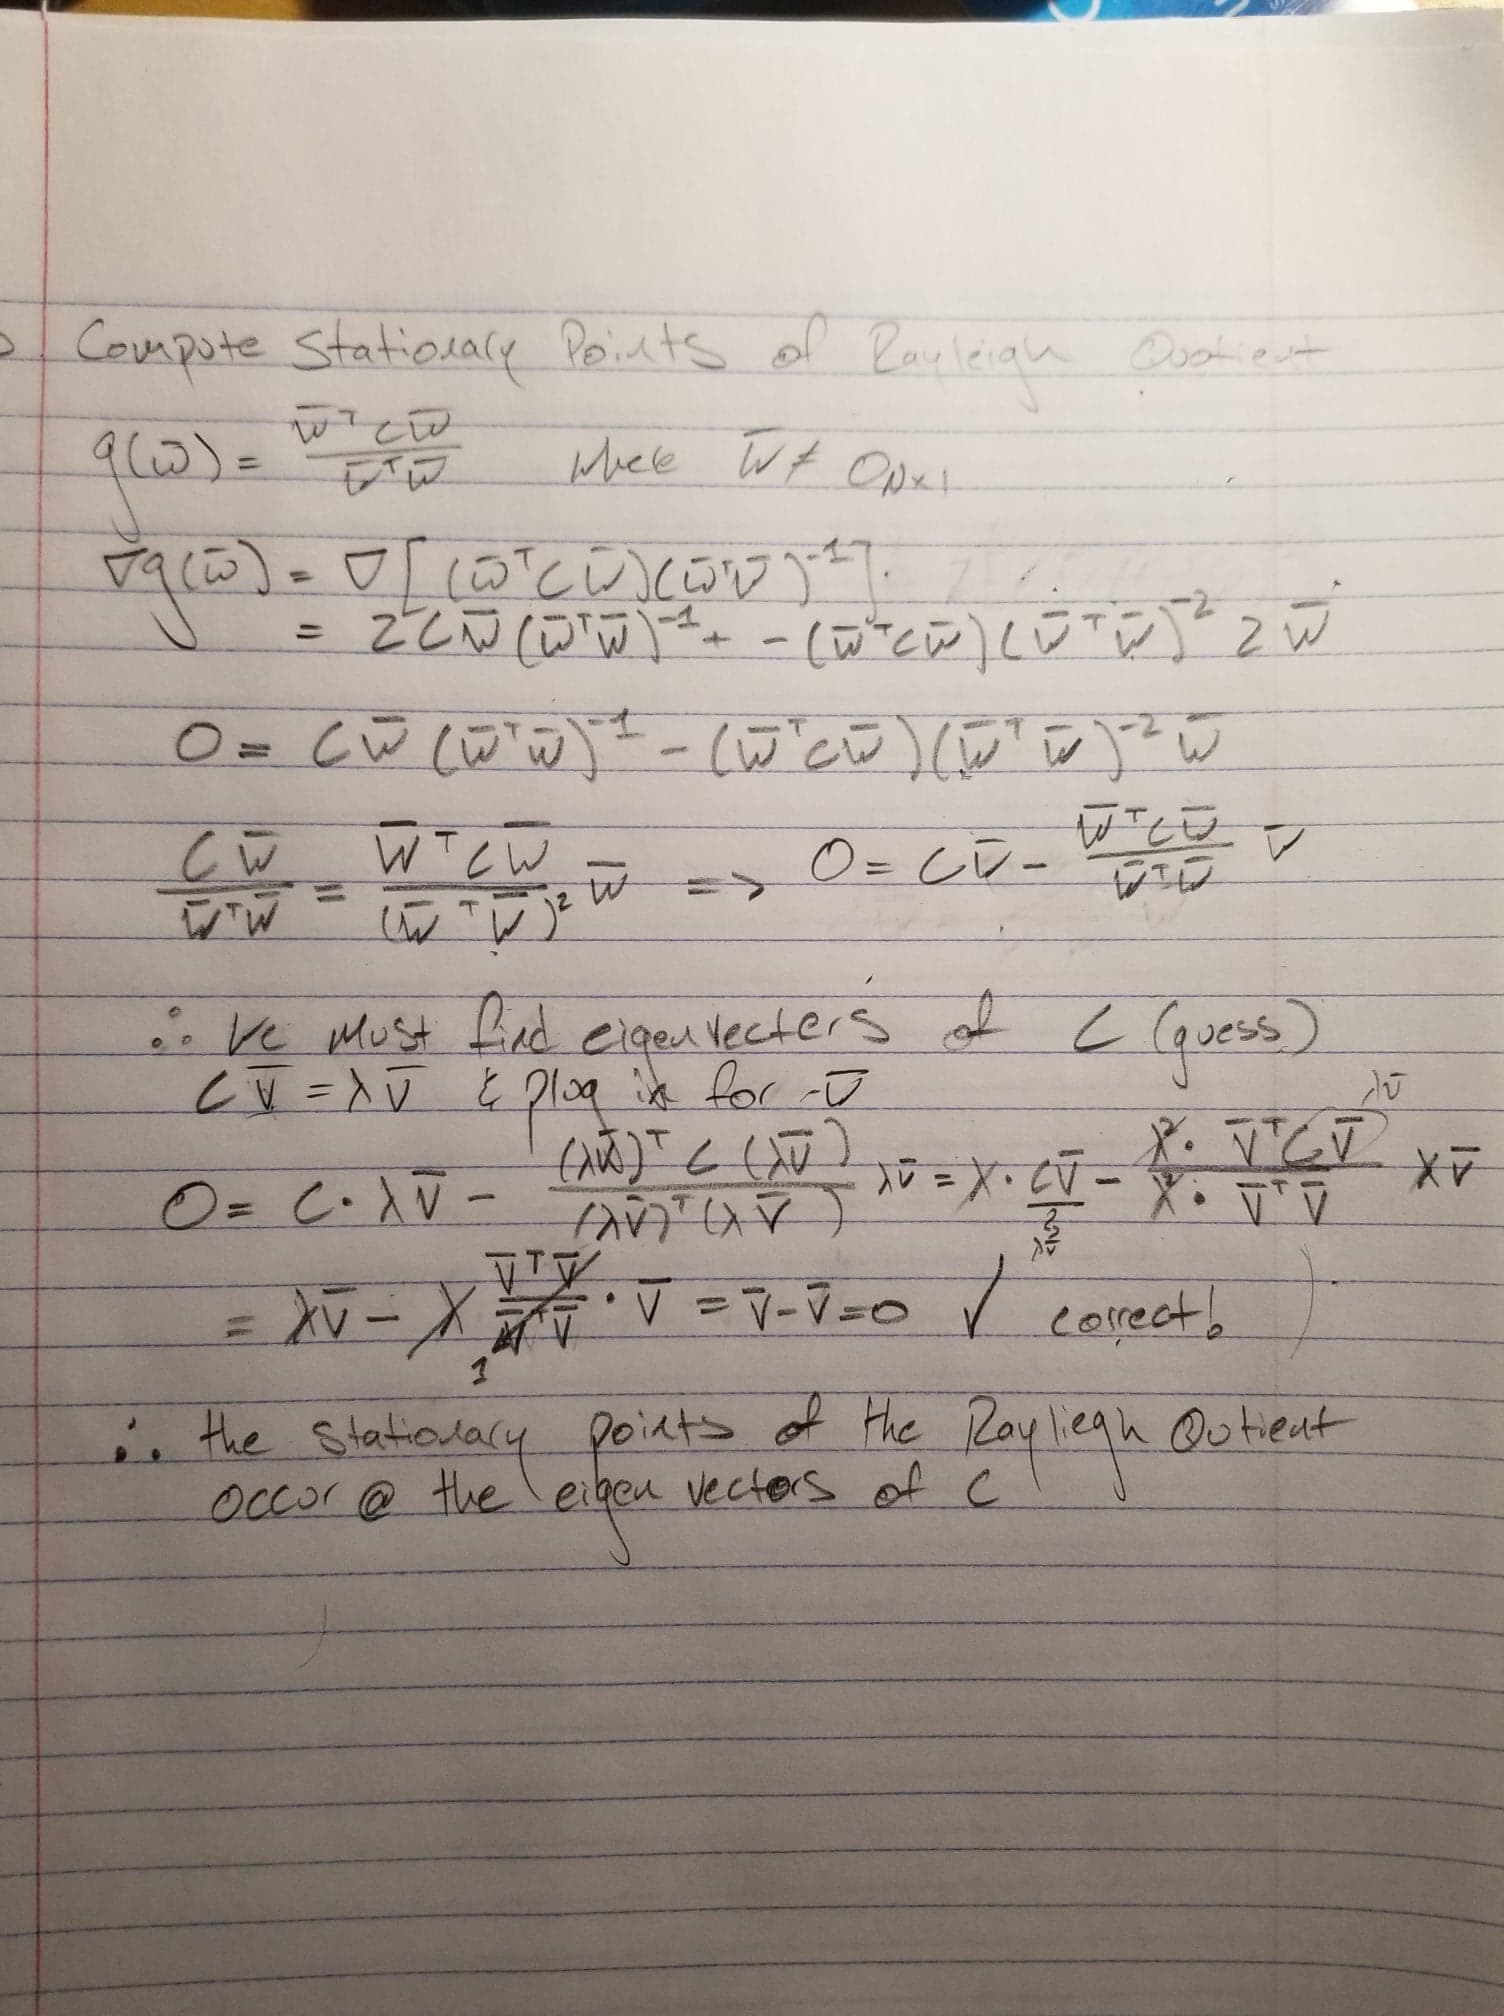 Compute Stationary Points of Rayleigh Quotient
g(w̅) = w̅ᵀCw̅ / w̅ᵀw̅ where w̅ ≠ 0_{N×1}
∇g(w̅) = ∇[(w̅ᵀCw̅)(w̅ᵀw̅)⁻¹]
= 2Cw̅(w̅ᵀw̅)⁻¹ + -(w̅ᵀCw̅)(w̅ᵀw̅)⁻² 2w̅
0 = Cw̅(w̅ᵀw̅)⁻¹ - (w̅ᵀCw̅)(w̅ᵀw̅)⁻² w̅
Cw̅ / w̅ᵀw̅ = w̅ᵀCw̅ / (w̅ᵀw̅)² w̅ => 0 = Cw̅ - w̅ᵀCw̅ / w̅ᵀw̅ w̅
∴ We must find eigenvecters of C (guess)
Cv̅ = λv̅ & plug in for w̅
0 = C·λv̅ - (λv̅)ᵀC(λv̅) / (λv̅)ᵀ(λv̅) λv̅ = λ·Cv̅ - λ²·v̅ᵀCv̅ / λ²·v̅ᵀv̅ λv̅
λv̅ λv̅
= λv̅ - λ v̅ᵀv̅ / v̅ᵀv̅ · v̅ = v̅ - v̅ = 0 ✓ correct!
1
∴ the stationary points of the Rayliegh Qutient
occur @ the eigen vectors of C